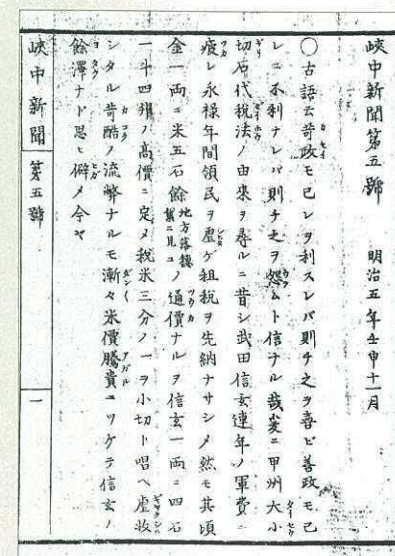 峽中新聞第五號　明治五年壬申十一月
〇古語云苛政モ己レヲ利スレバ則チ之ヲ喜ビ善政モ己
レニ不利ナレバ則チ之ヲ怨ムト信ナル哉爰ニ甲州大小
切石代税法ノ由來ヲ尋ルニ昔シ武田信玄連年ノ軍費ニ
疲レ永禄年間領民ヲ虐ゲ租税ヲ先納ナサシメ然モ其頃
金一両ニ米五石餘地方落穂集ニ見ユノ通價ナルヲ信玄一両ニ四石
一斗四升ノ高價ニ定メ税米三分ノ一ヲ小切ト唱ヘ虐收
シタル苛酷ノ流弊ナルモ漸々米價騰貴ニツケテ信玄ノ
餘澤ナド思ヒ僻メ今ヤ
峽中新聞　第五號　一